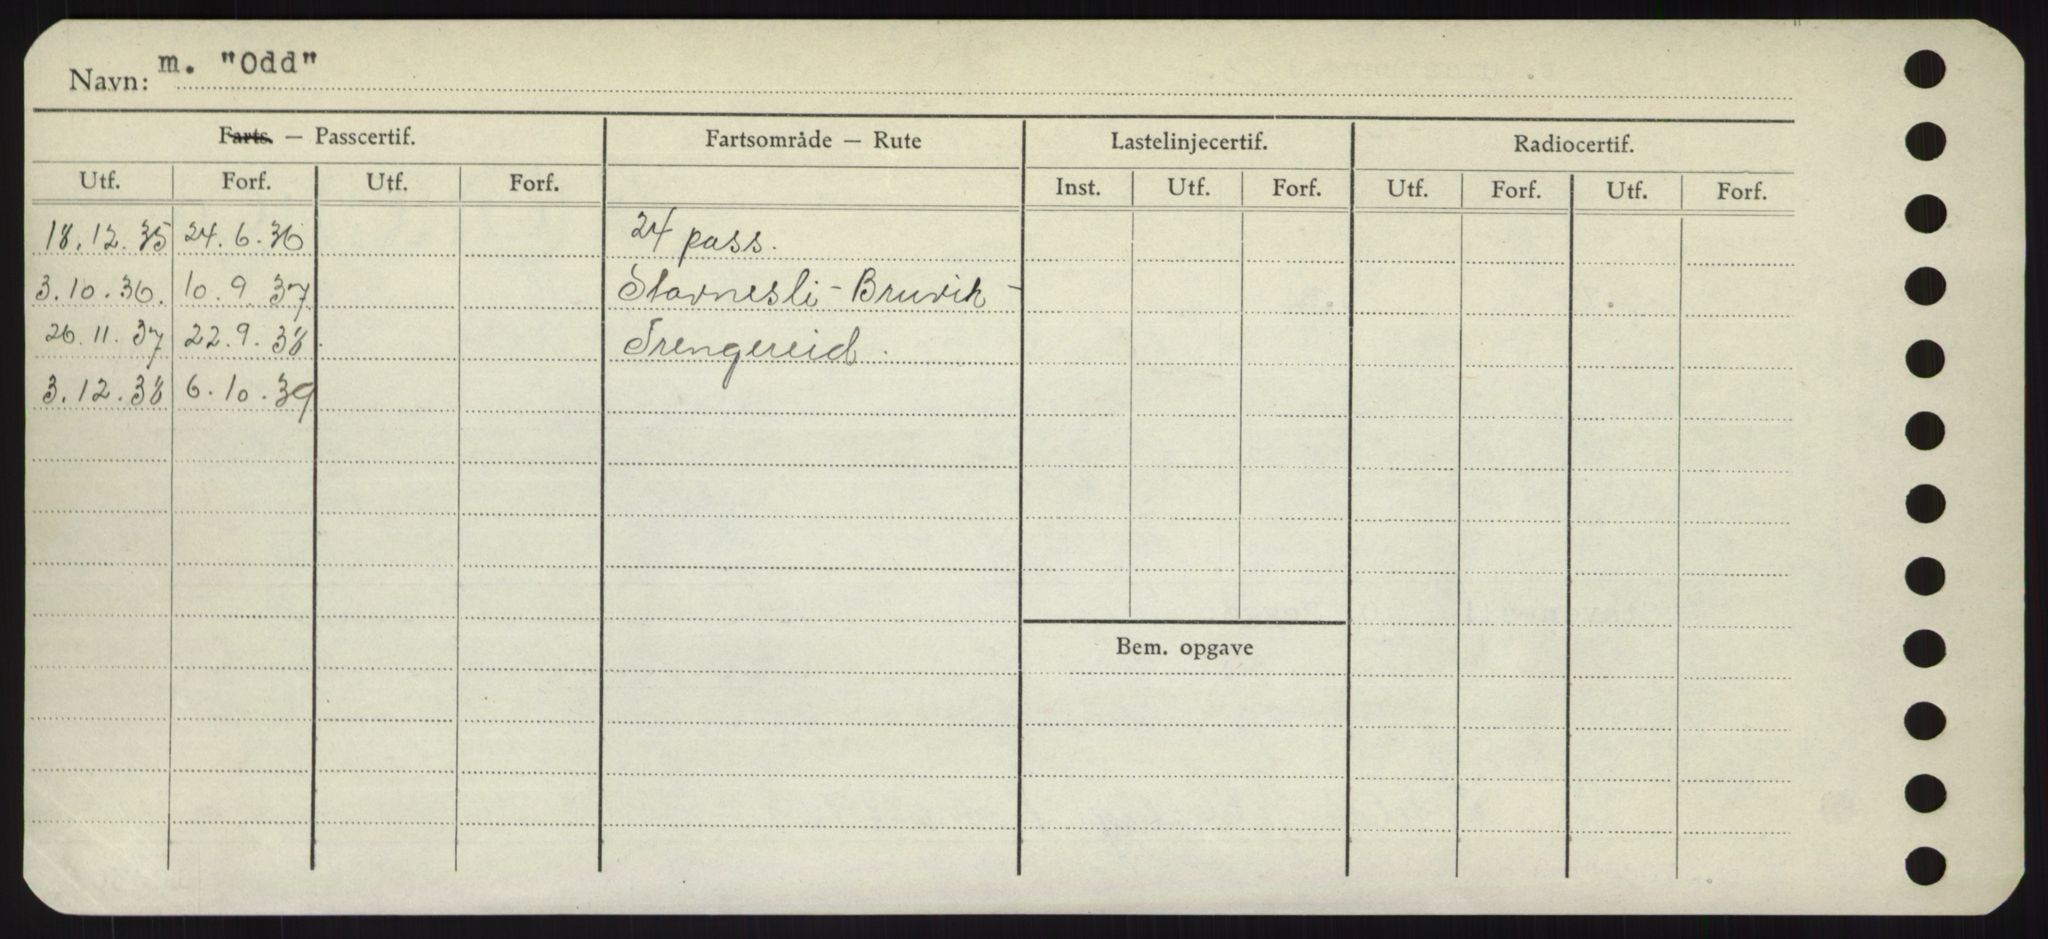 Navn: m. "Odd"
Farts. — Passcertif. Fartsområde — Rute Lastelinjecertif. Radiocertif.
Utf. Forf. Utf. Forf. Inst. Utf. Forf. Utf. Forf. Utf. Forf.
18.12.35 24.6.36 24 pass.
3.10.36. 10.9.37 Stavnesli - Bruvik -
26.11.37 22.9.38. Trengereid.
3.12.38 6.10.39
Bem. opgave